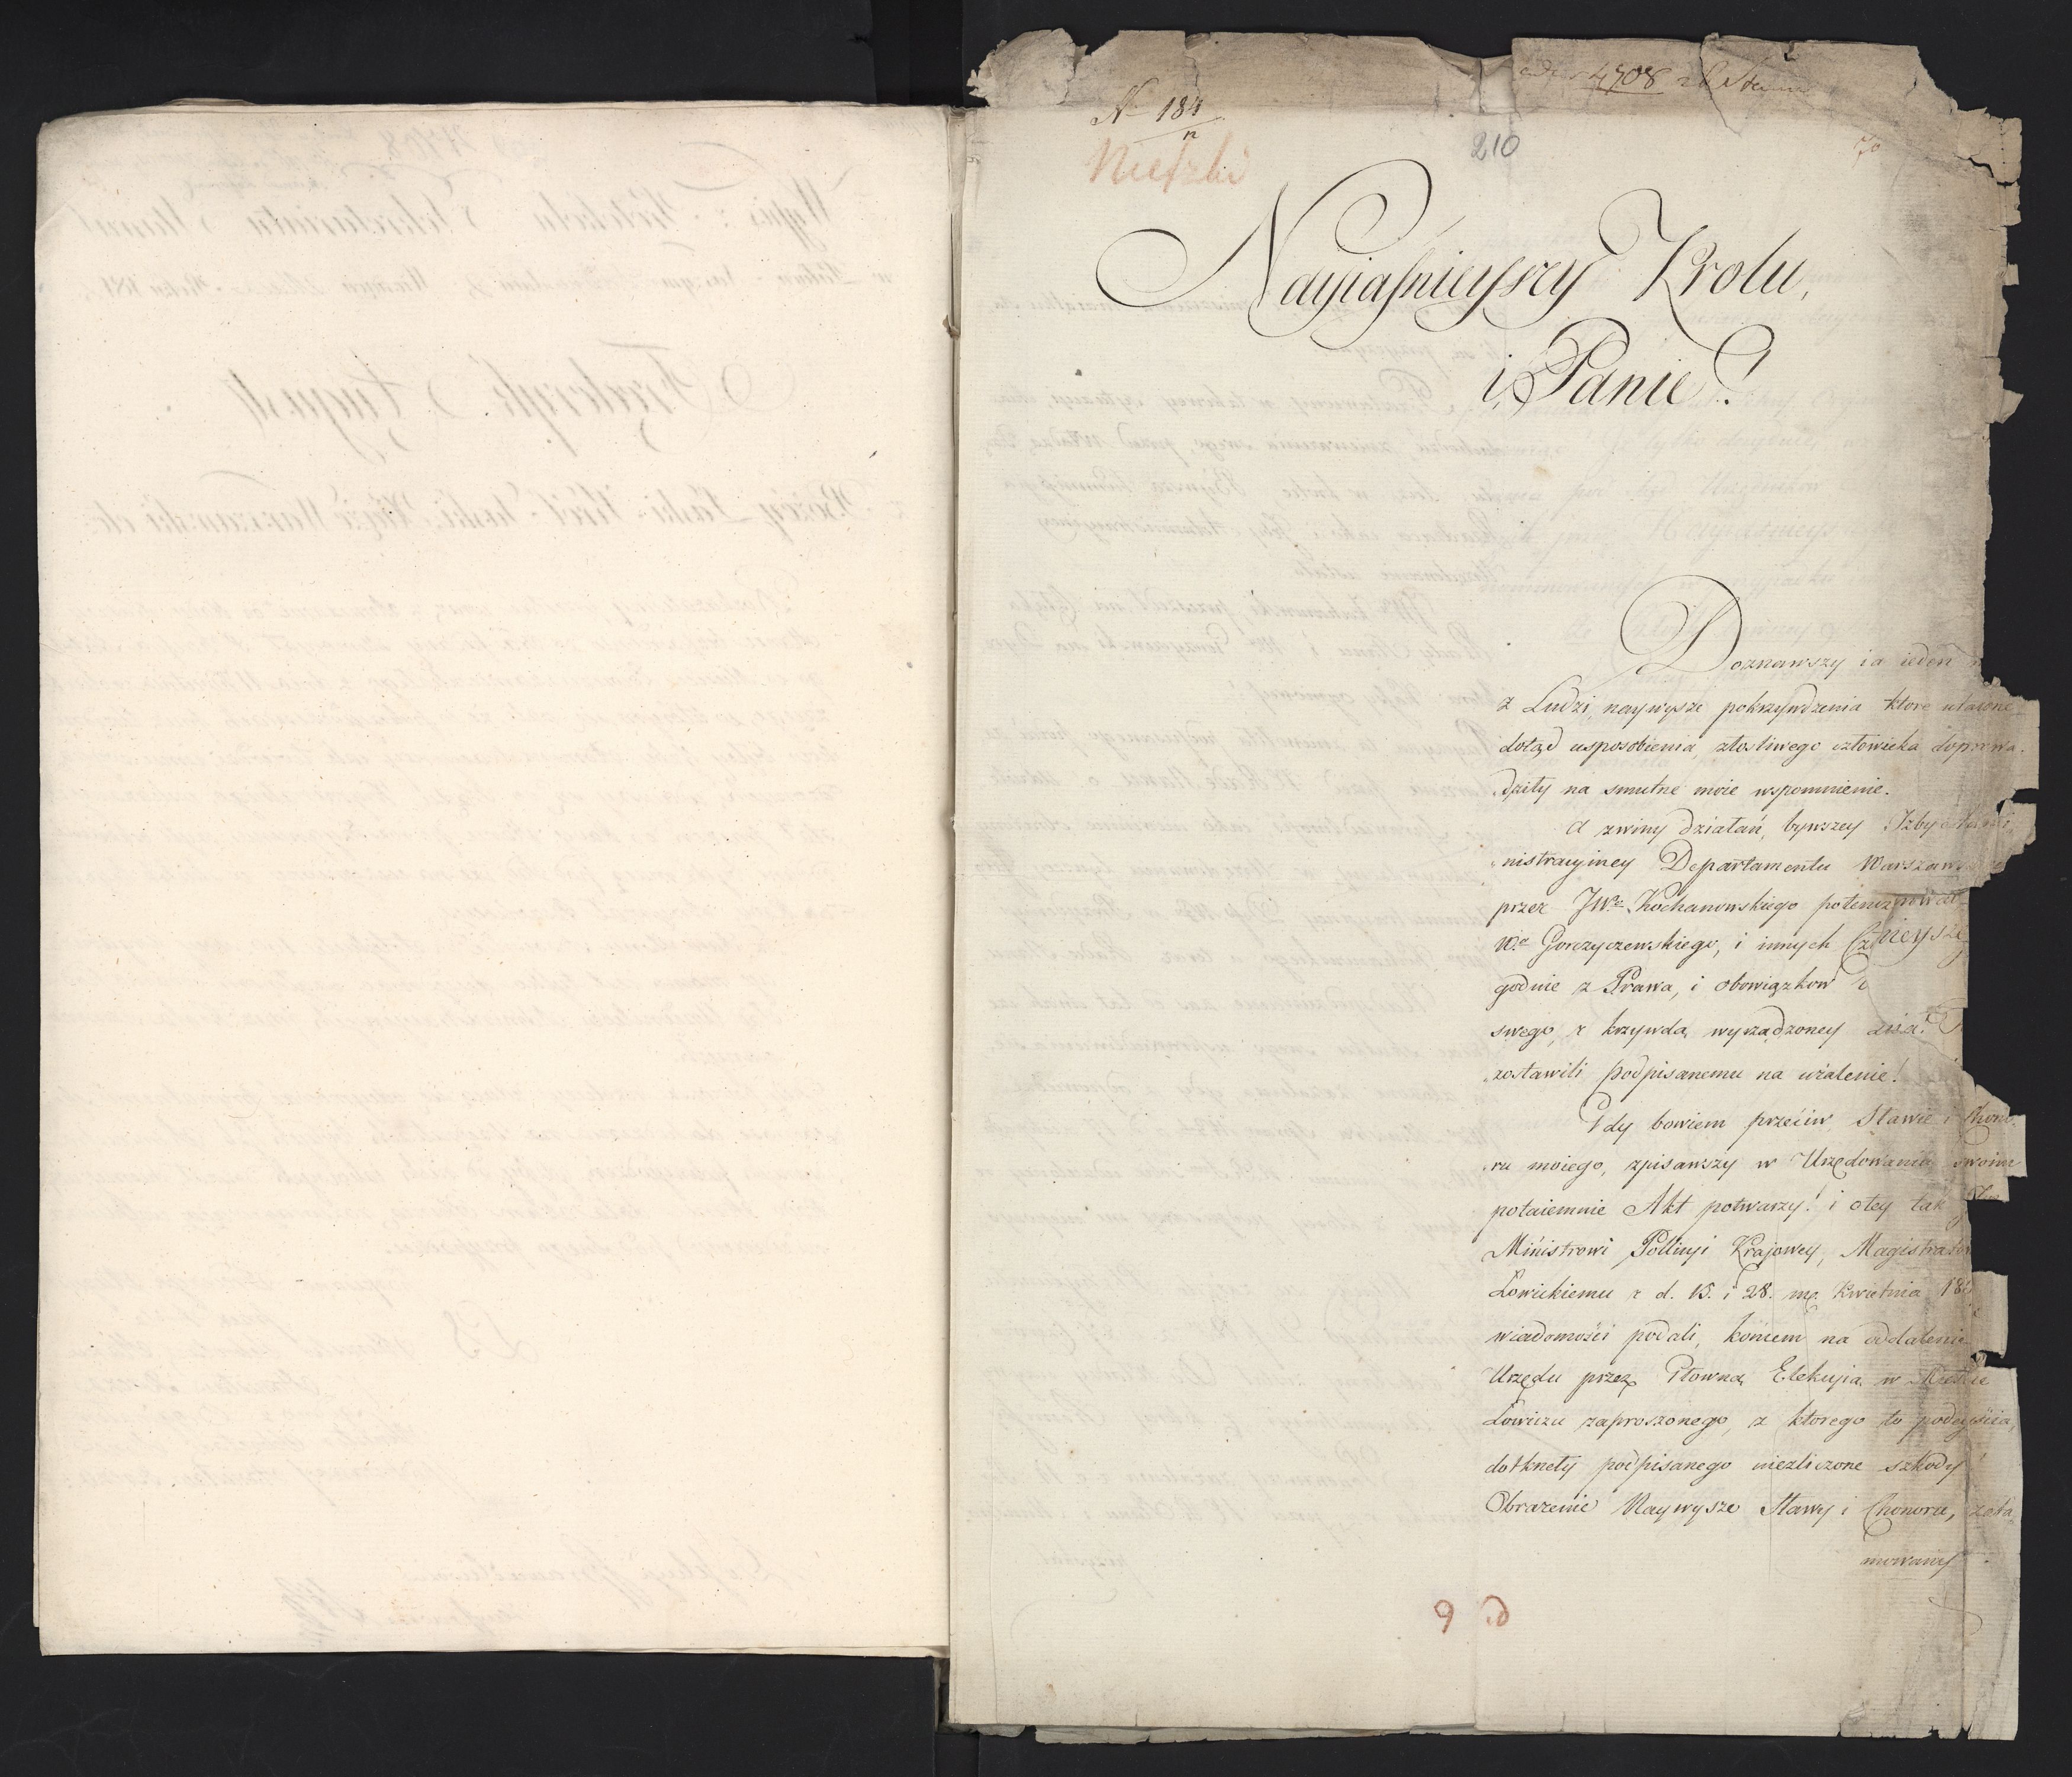 4708
N 184
n
210
70
Nayiaśnieyszy Krolu,
i Panie!
Doznawszy ia ieden
z Ludzi, naywysze pokrzywdzenia ktore utaione
dotąd usposobienia, złosliwego człowieka doprowa-
dziły na smutne moie wspomnienie.
A zwiny działań, bywszey Izby Admi-
nistracyiney Departamentu Warszaws
przez JWo Kochanowskiego
Wo Gorczyczewskiego, i innych
godnie z Prawa, i obowiązkow
swego, z krzywdą wyrządzoney
zostawili podpisanemu na użalenie!
Gdy bowiem przeciw Sławie i Chono-
ru moiego, zpisawszy w Urzędowaniu swoim
potaiemnie Akt potwarzy! i otey tak
Ministrowi Policyi Krajowey, Magistratowi
Łowickiemu z d. 15. i 28. mca Kwietnia 18
wiadomości podali, końcem na oddalenie
Urzędu przez Głowną Elekcyią w Mieście
Łowiczu zaproszonego, z ktorego to podeyścia,
dotknęły podpisanego niezliczone szkody!
Obrażenie Naywysze Sławy i Chonoru, zata
mowany
9 d.